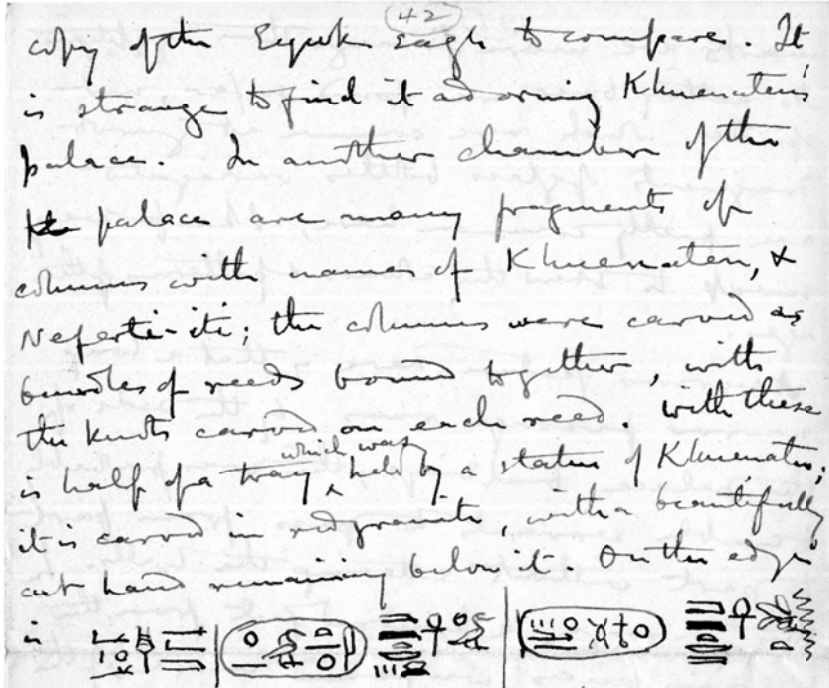 (42)
copy of the Eyuk eagle to compare. It
is strange to find it adorning Khuenaten's
palace. In another chamber of the
palace are many fragments of
columns with names of Khuenaten, &
Neferti-iti; the columns were carved as
bundles of reeds bound together, with
the knots carved on each reed. With these
is half of a tray, which was held by a statue of Khuenaten;
it is carved in red granite, with a beautifully
cut hand remaining below it. On the edge
is